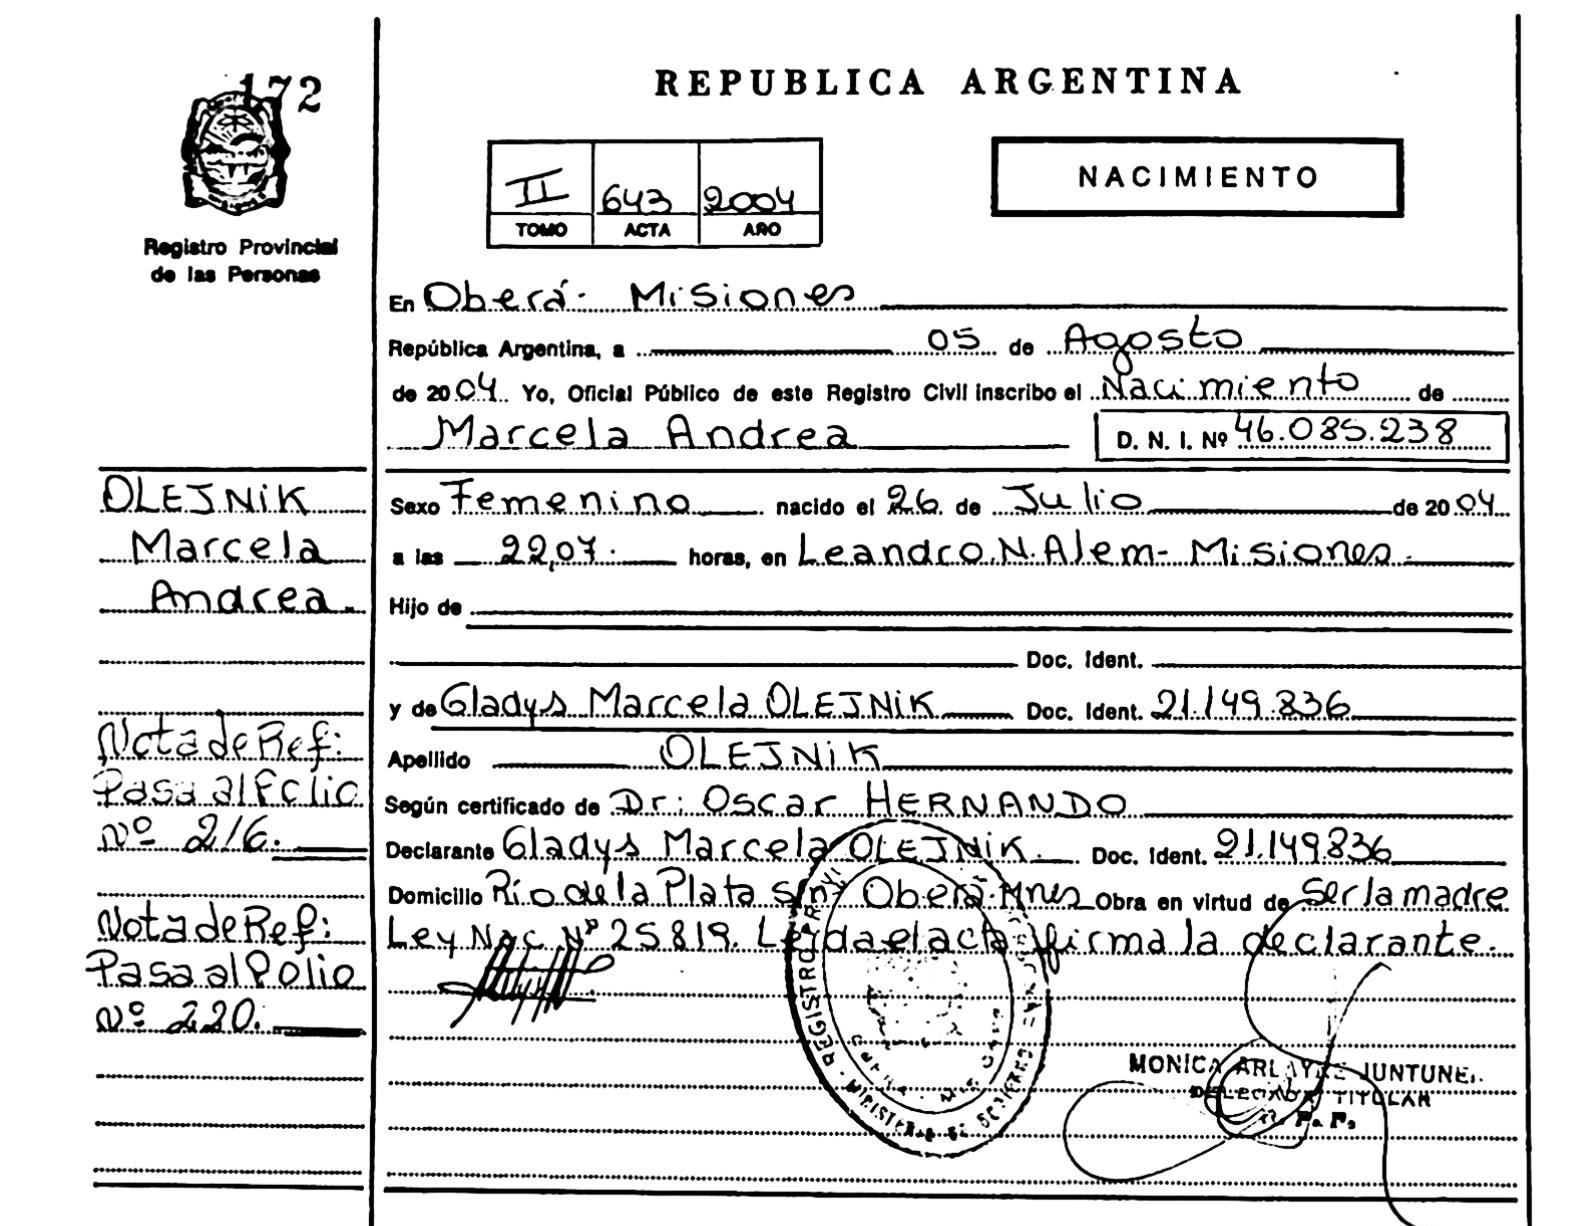 172
REPUBLICA ARGENTINA
NACIMIENTO
II 643 2004
TOMO ACTA AÑO
Registro Provincial
de las Personas
En Oberá - Misiones
República Argentina, a 05 de Agosto
de 2004. Yo, Oficial Público de este Registro Civil inscribo el Nacimiento de
Marcela Andrea D. N. I. Nº 46.085.238
OLEJNiK
Marcela
Andrea.
Sexo Femenino nacido el 26 de Julio de 2004
a las 22,07. horas, en Leandro.N.Alem- Misiones.
Hijo de
Doc. Ident.
y de Gladys Marcela OLEJNiK Doc. Ident. 21.149.836
Apellido OLEJNiK
Según certificado de Dr: Oscar HERNANDO
Declarante Gladys Marcela OLEJNiK. Doc. Ident. 21.149.836
Domicilio Río de la Plata s/nº Oberá-Mnes Obra en virtud de Ser la madre
Ley Nac Nº 25819. Leida el acta firma la declarante.
Nota de Ref:
Pasa al Folio
Nº 216.
Nota de Ref:
Pasa al Folio
Nº 220.
REGISTRO PROVI
MINISTERIO DE GOBIERNO
MONICA ARLAYNE JUNTUNE
DELEGADA TITULAR
R. P. P.